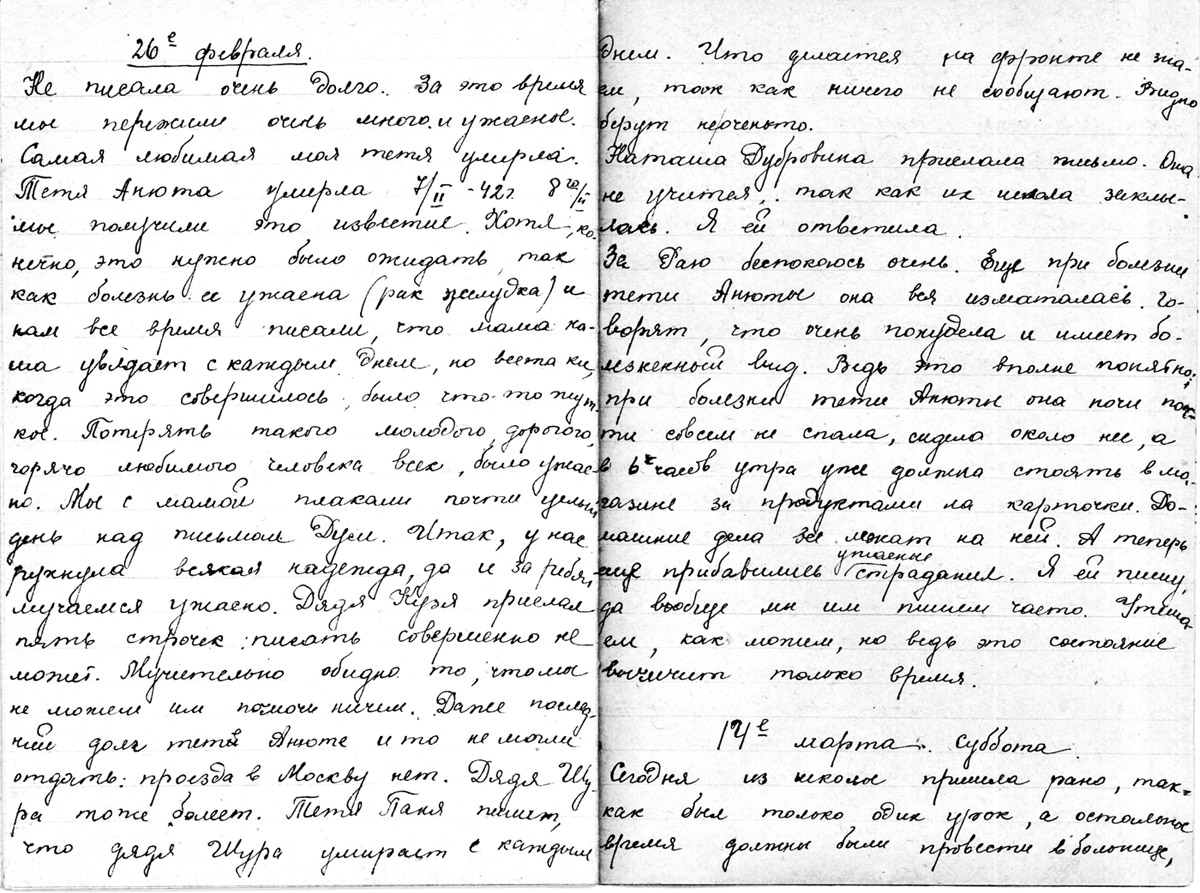 26е февраля.
Не писала очень долго. За это время
мы пережили очень много и ужасное.
Самая любимая моя тетя умирла.
Тетя Анюта умерла 7/II -42г. 8го/II
мы получили это известие. Хотя, ко-
нечно, это нужно было ожидать, так
как болезнь ее ужасна (рак желудка) и
нам все время писали, что мама на-
ша увядает с каждым днем, но все таки,
когда это совершилось, было что-то жут-
кое. Потерять такого молодого, дорогого
горячо любимого человека всем, было ужас-
но. Мы с мамой плакали почти целый
день над письмом Дуси. Итак, у нас
рухнула всякая надежда, да и за ребят
мучаемся ужасно. Дядя Кузя прислал
пять строчек: писать совершенно не
может. Мучительно обидно то, что мы
не можем им помочь ничем. Даже послед-
ний долг тете Анюте и то не могли
отдать: проезда в Москву нет. Дядя Шу-
ра тоже болеет. Тетя Паня пишет,
что дядя Шура умирает с каждым
днем. Что делается на фронте не зна-
ем, так как ничего не сообщают. Видно
берут
Наташа Дубровина прислала письмо. Она
не учится, так как их школа закры-
лась. Я ей ответила.
За Раю беспокоюсь очень. Еще при болезни
тети Анюты она вся измоталась. Го-
ворят, что очень похудела и имеет бо-
лезненный вид. Ведь это вполне понятно:
при болезни тети Анюты она ночи поч-
ти совсем не спала, сидела около нее, а
в 6 часов утра уже должна стоять в ма-
газине за продуктами на карточки. До-
машние дела все лежат на ней. А теперь
еще прибавились ужасные страдания. Я ей пишу,
да вообще мы им пишем часто. Утеша-
ем, как можем, но ведь это состояние
вылечит только время.
14е марта. Суббота
Сегодня из школы пришла рано, так-
как был только один урок, а остальное
время должны были провести в больнице,